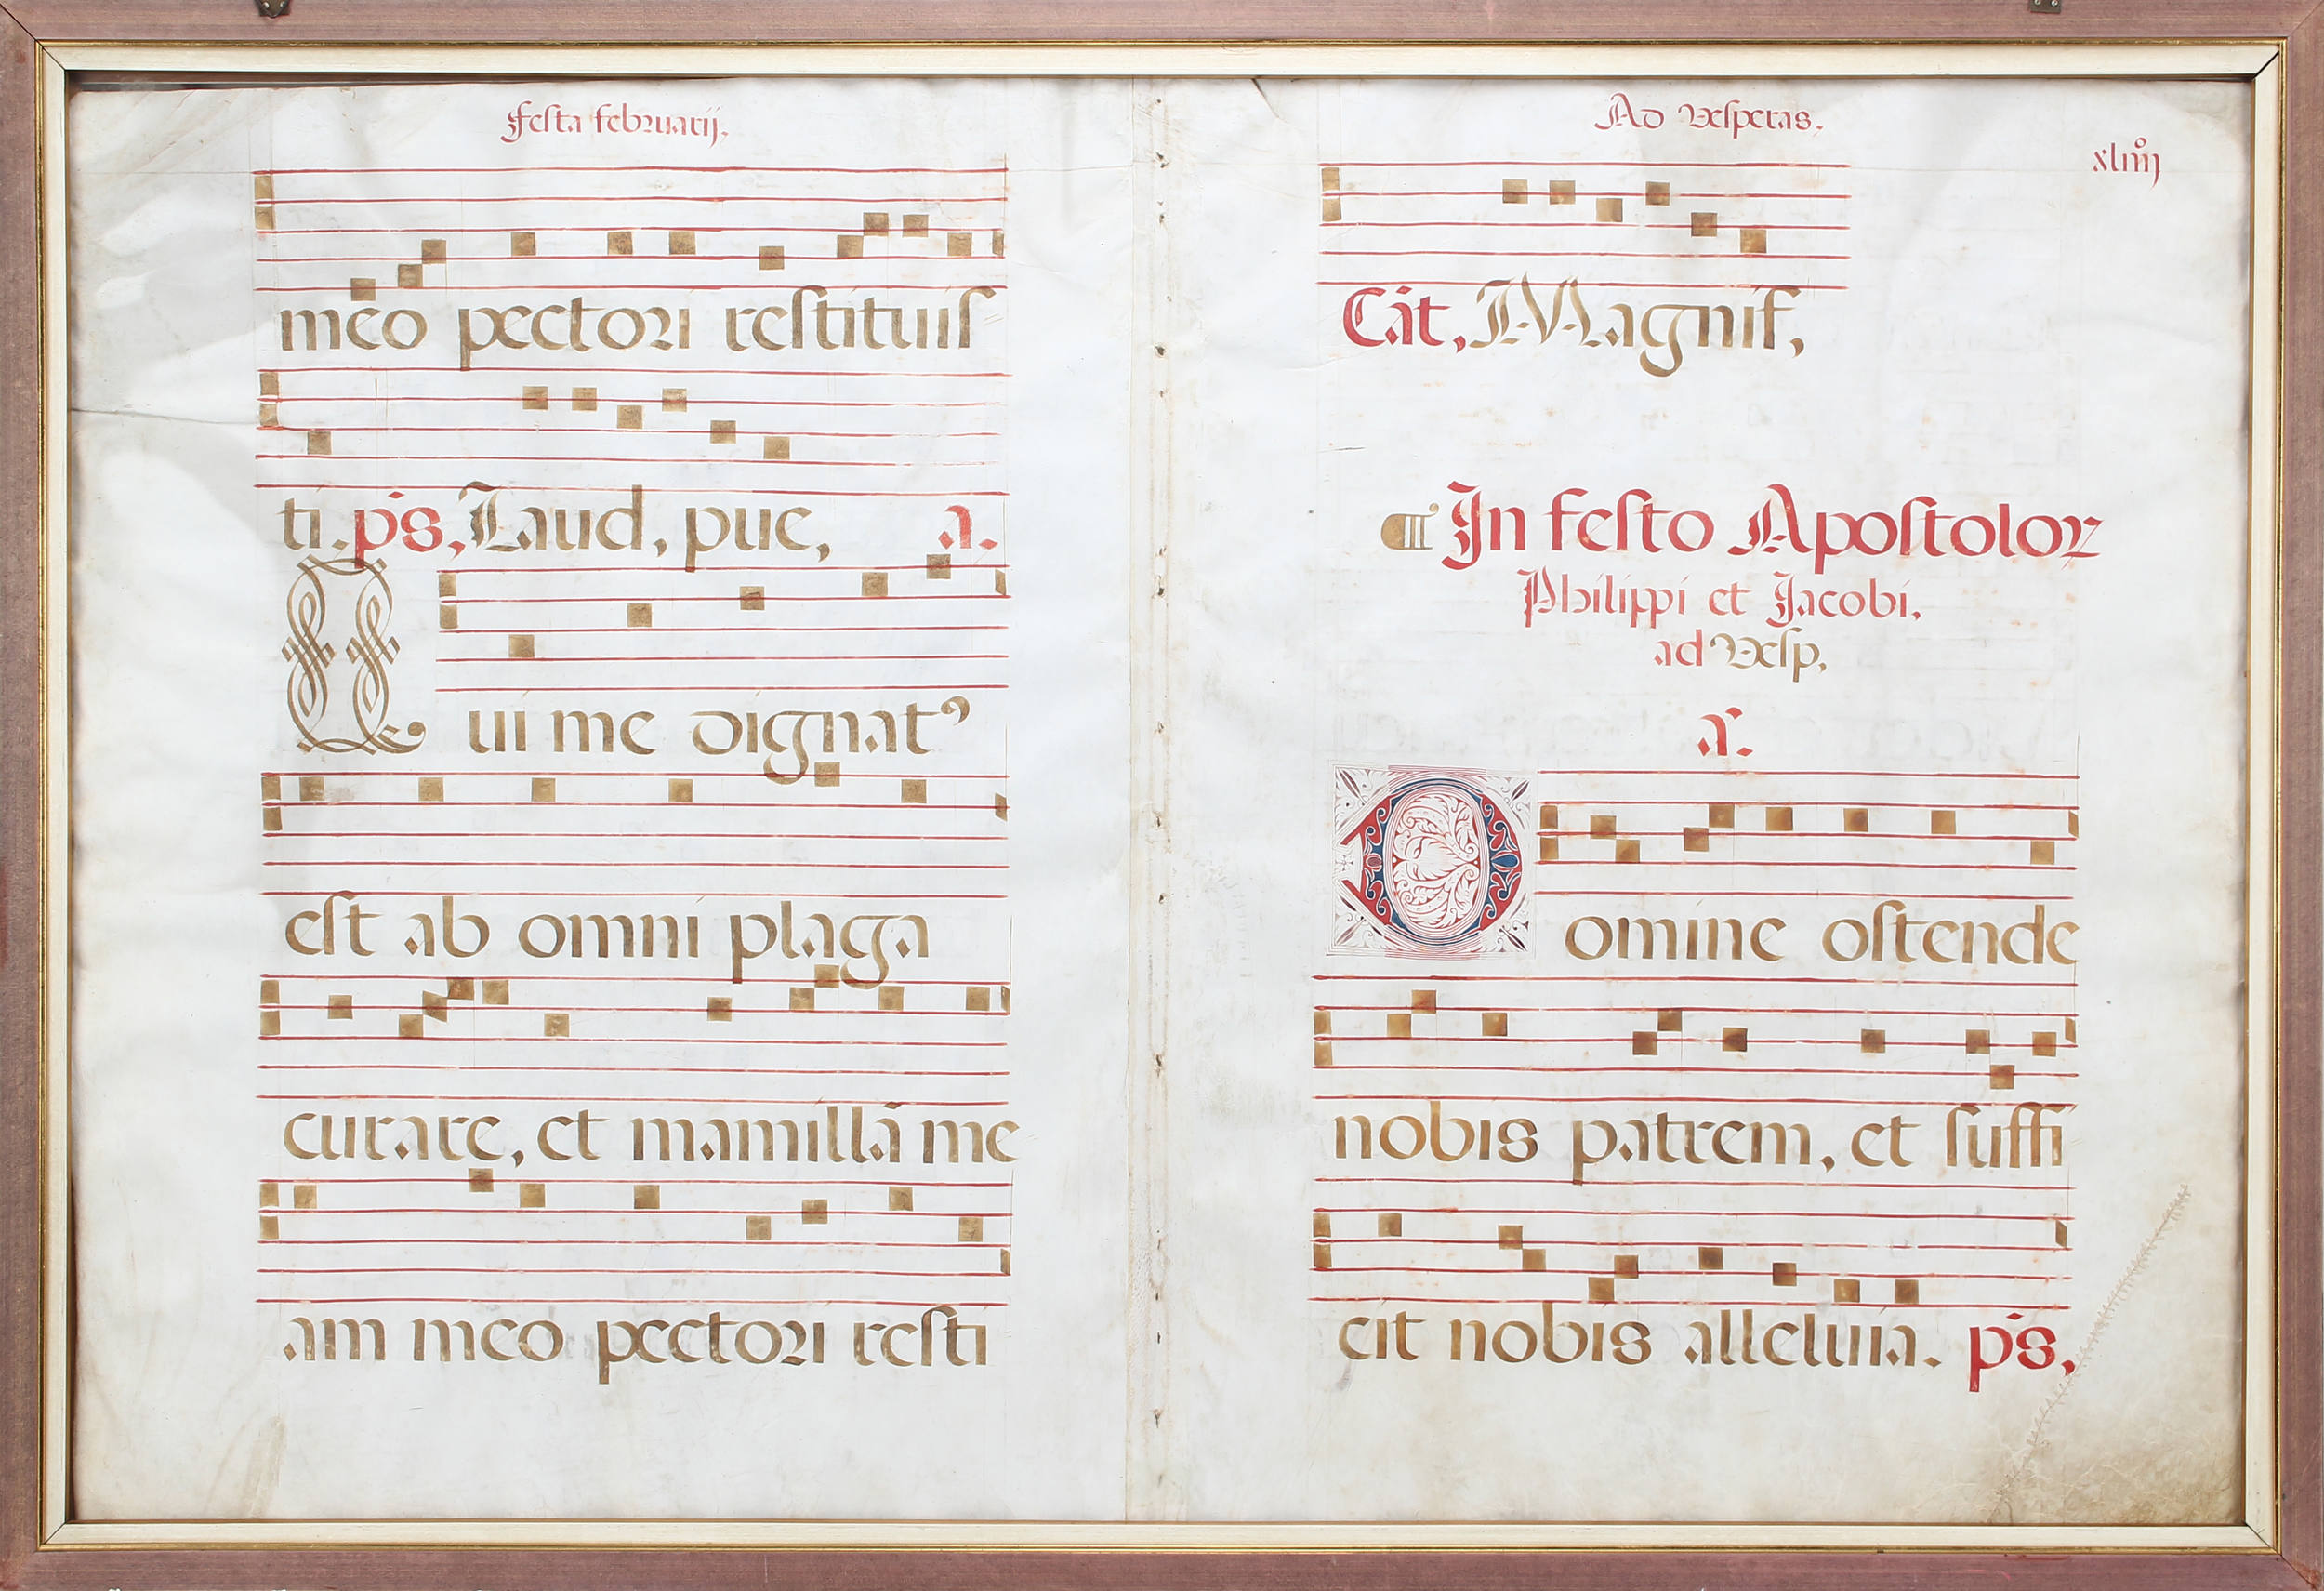 Festa februarij.
meo pectori restituis
ti. ps, Laud, pue, a.
Qui me dignat⁹
est ab omni plaga
curare, et mamillā me
am meo pectori resti
Ad Vesperas.
Cāt, Magnif,
¶ In festo Apostoloꝝ
Philippi et Jacobi.
ad Vesp,
a.
Domine ostende
nobis patrem, et suffi
cit nobis alleluia. ps,